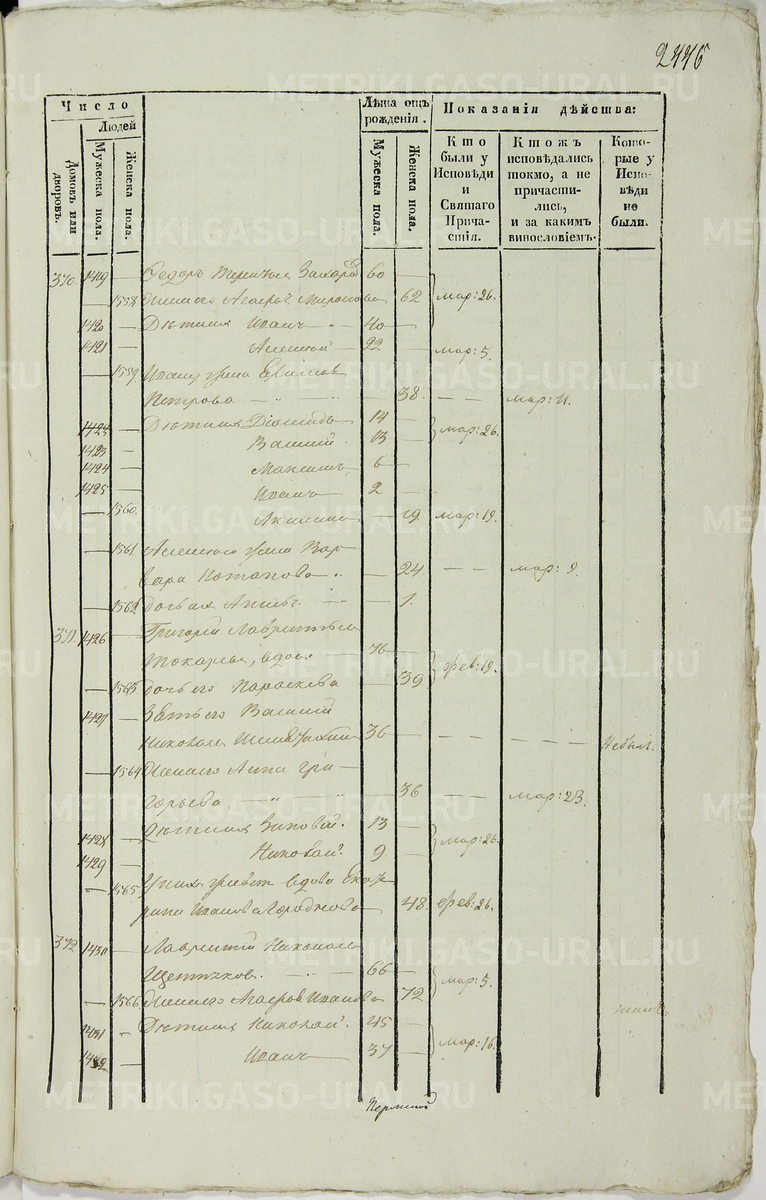 2446
Число
Людей
Домовъ или дворовъ.
Мужеска пола.
Женска пола.
Лѣта отъ рожденія.
Мужеска пола.
Женска пола.
Показанія дѣйства:
Кто были у Исповѣди и Святаго Причастія.
Ктожъ исповѣдались токмо, а не причастились, и за какимъ винословіемъ.
Которые у Исповѣди не были.
370. 1419 — Ѳедоръ 60 —
— 1558 Жена его Агафья Миронова 62 мар: 26.
1420 — Дѣти ихъ Иванъ — 40 —
1421 — Алексѣй — 22 — мар: 5.
— 1559 Ивану жена
Петрова — 38. — — мар: 11.
1422 — Дѣти ихъ Діомидъ 14
1423 — Василій. 13 — мар: 26.
1424 — Максимъ 6 —
1425 — Иванъ 2 —
— 1560. Акилина — 19 мар: 19.
— 1561 Алексѣю жена Вар-
вара Потапова — 24 — — мар: 9.
— 1562 Дочь их — 1.
371. 1426 — Григорій Лаврентьевъ
Токаревъ, вдовъ — 76 —
— 1563 Дочь его Параскева 39 фев: 19.
1427 — Зять его Василій
Николаевъ 36 — — — — Небылъ.
— 1564 Жена его Анна Гри-
горьева — 36 — — мар: 23.
1428 — Дѣти ихъ Зиновій. 13 —
1429 — Николай. 9 — мар: 26.
— 1565 У нихъ живетъ вдова Ека-
рина Иванова 48. фев: 26.
372 1430 — Лаврентій Николаевъ
Щетниковъ. — 66 —
— 1566 Жена его Агафья Иванова 72 мар: 5.
1431 — Дѣти ихъ Николай. 45 —
1432 — Иванъ — 37 — мар: 16.
Пермской
METRIKI.GASO-URAL.RU